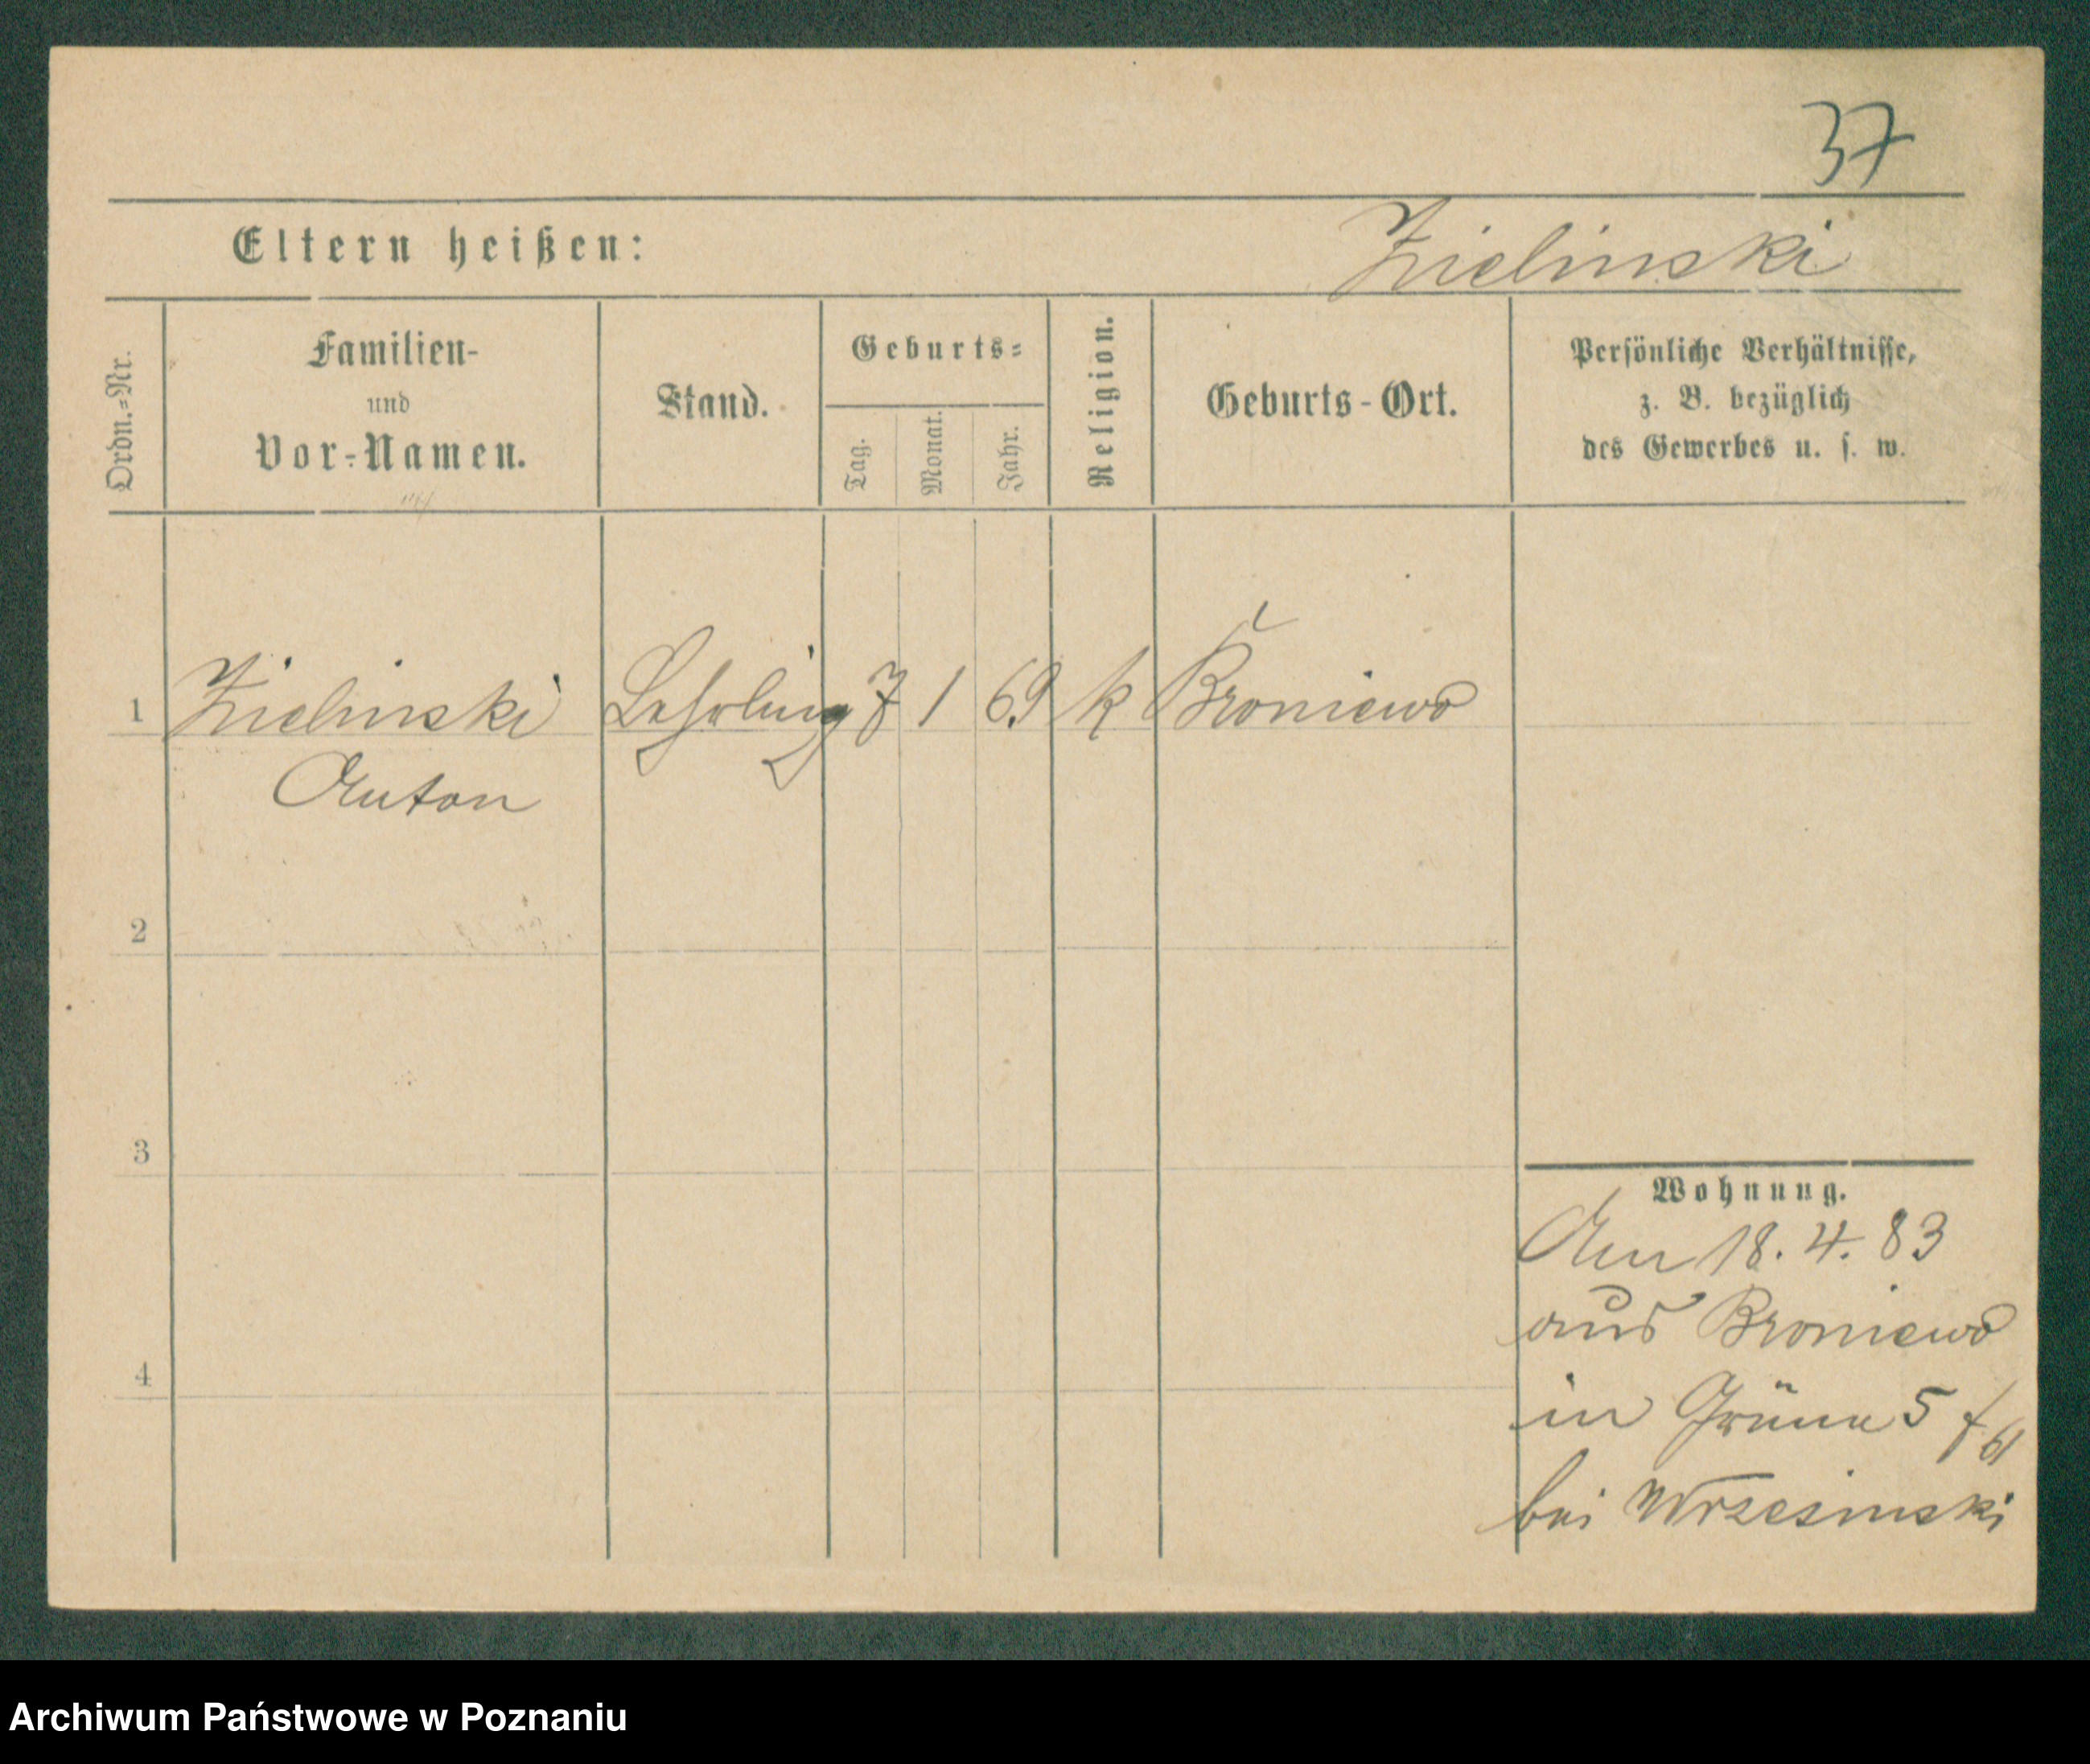 37
Eltern heißen:
Zielinski
Ordn.=Nr.
Familien-
und
Vor-Namen.
Stand.
Geburts=
Tag.
Monat.
Jahr.
Religion.
Geburts-Ort.
Persönliche Verhältnisse,
z. B. bezüglich
des Gewerbes u. s. w.
1 Zielinski Lehrling 7 1 69 k Broniewo
Anton
2
3
4
Wohnung.
Am 18. 4. 83
aus Broniewo
in Grüne 5
bei Wrzesinski
Archiwum Państwowe w Poznaniu